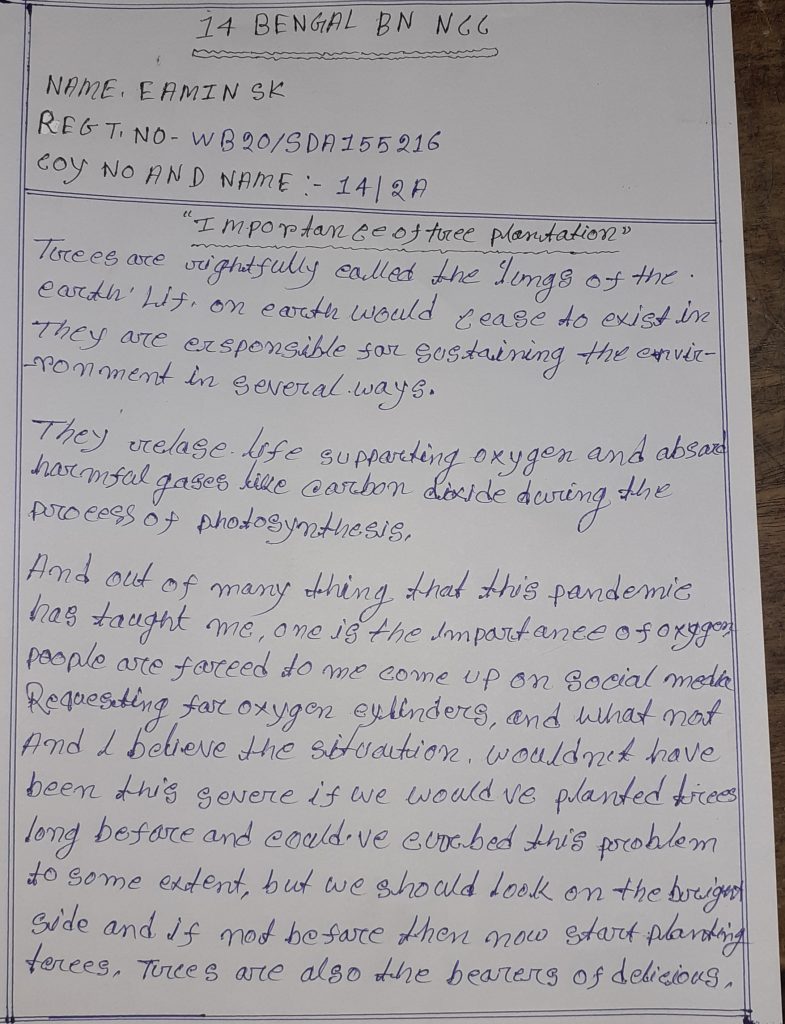 14 BENGAL BN NCC
NAME. EAMIN SK
REGT. NO- WB20/SDA155216
COY NO AND NAME :- 14/2A
"Importance of tree plantation"
Trees are rightfully called the lungs of the.
earth' Lif. on earth would cease to exist in
They are ersponsible for sustaining the envir-
-ronment in several ways.
They relase life supporting oxygen and absord
harmfal gases like carbon dixide during the
process of photosynthesis.
And out of many thing that this pandemic
has taught me, one is the importance of oxygen
people are forced to me come up on social media
Requesting for oxygen cylinders, and what not
And I believe the situation. wouldnct have
been this severe if we would ve planted trees
long before and could've curbed this problem
to some extent, but we should look on the bright
side and if not before then now start planting
terees. Trees are also the bearers of delicious.